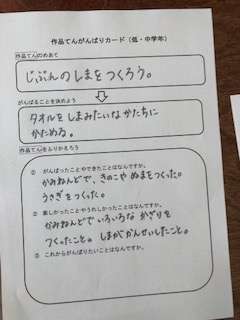 作品てんがんばりカード（低・中学年）
作品てんのめあて
じぶんのしまをつくろう。
がんばることを決めよう
タオルをしまみたいなかたちに
かためる。
作品てんをふりかえろう
① がんばったことやできたことはなんですか。
かみねんどで、きのこや ぬまをつくった。
うさぎをつくった。
② 楽しかったことやうれしかったことはなんですか。
かみねんどでいろいろな かざりを
つくったこと。しまがかんせいしたこと。
③ これからがんばりたいことはなんですか。